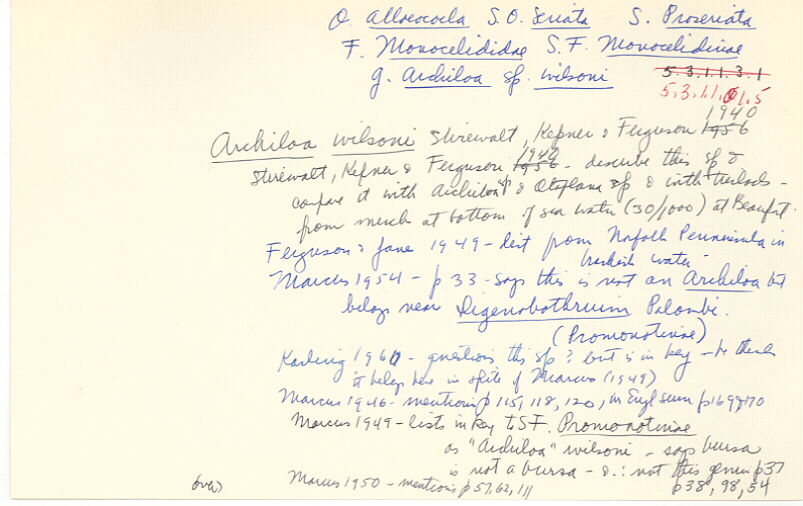 O. Alloeocoela S.O. Seriata S. Proseriata
F. Monocelididae S.F. Monocelidinae
g. Archiloa sp. wilsoni 5.3.1.1.3.1
5.3.1.1.01.5
1940
Archiloa wilsoni Stirewalt, Kepner & Ferguson 1956
Stirewalt, Kepner & Ferguson 1940 1956 - describe this sp &
compare it with Archiloa sp & Otoplana sp & with triclads -
from much at bottom of sea water (30/1000) at Beaufort.
Ferguson & Jane 1949 - list from Norfolk Peninsula in
brackish water -
Marcus 1954 - p 33 - says this is not an Archiloa but
belongs near Digenobothrium Palombi.
(Promonotinae)
Karling 1960 - questions this sp? but is in key - he thinks
it belongs here in spite of Marcus (1949)
Marcus 1946 - mentions p 115, 118, 120, in Engl summ p 169, 170
Marcus 1949 - lists in key to S.F. Promonotinae
as "Archiloa" wilsoni - says bursa
is not a bursa - & ∴ not this genus p 37
(over) Marcus 1950 - mentions p 57, 62, 111 p 38, 98, 54